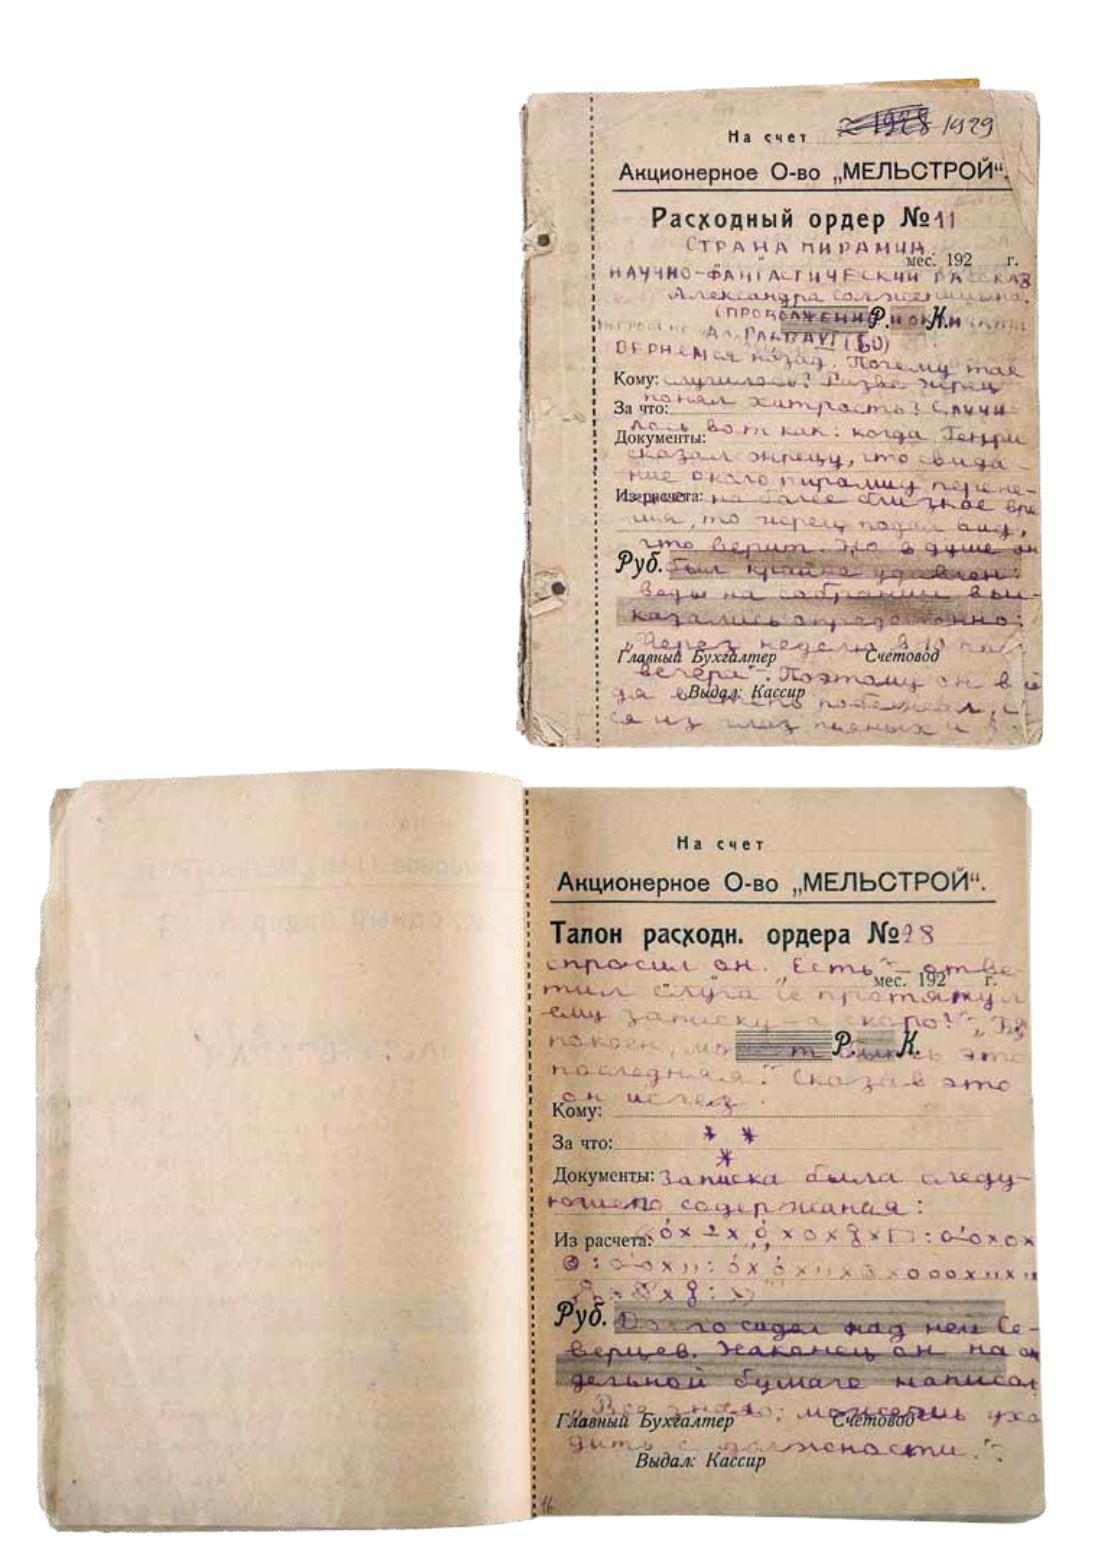 1928 1929
На счет
Акционерное О-во „МЕЛЬСТРОЙ“.
Расходный ордер № 11
СТРАНА ПИРАМИД.
мес. 192 г.
НАУЧНО-ФАНТАСТИЧЕСКИЙ РАССКАЗ
Александра Солженицына.
(ПРОДОЛЖЕНИЕ И
Р. К.
ВЕРНЕМСЯ назад. Почему так
Кому: случилось? Разве жрец
За что: понял хитрость? Случи
лось вот как: когда Генри
Документы:
сказал жрецу, что свида-
ние около пирамид перене-
Из расчета: на более близкое вре
мя, то жрец подал вид,
что верит. Но в душе он
Руб. был крайне удивлен:
ведь на собрании выс-
казались определенно:
„Через неделю в 10 час
Главный Бухгалтер Счетовод
вечера“. Поэтому он
Выдал: Кассир
дя в степь побежал,
ся из глаз пьяных и
На счет
Акционерное О-во „МЕЛЬСТРОЙ“.
Талон расходн. ордера № 28
спросил он. „Есть“ – отве-
мес. 192 г.
тил слуга и протянул
ему записку – а скоро?“
покоен, может быть это
Р. К.
последняя.“ Сказав это
он исчез.
Кому:
За что: * * *
Документы: Записка была следу-
ющего содержания:
Из расчета:
Руб. Долго сидел над ней Се-
верцев. Наконец он на от
дельной бумаге написал
„Все знаю; можешь ухо
Главный Бухгалтер Счетовод
дить с должности.“
Выдал: Кассир
16